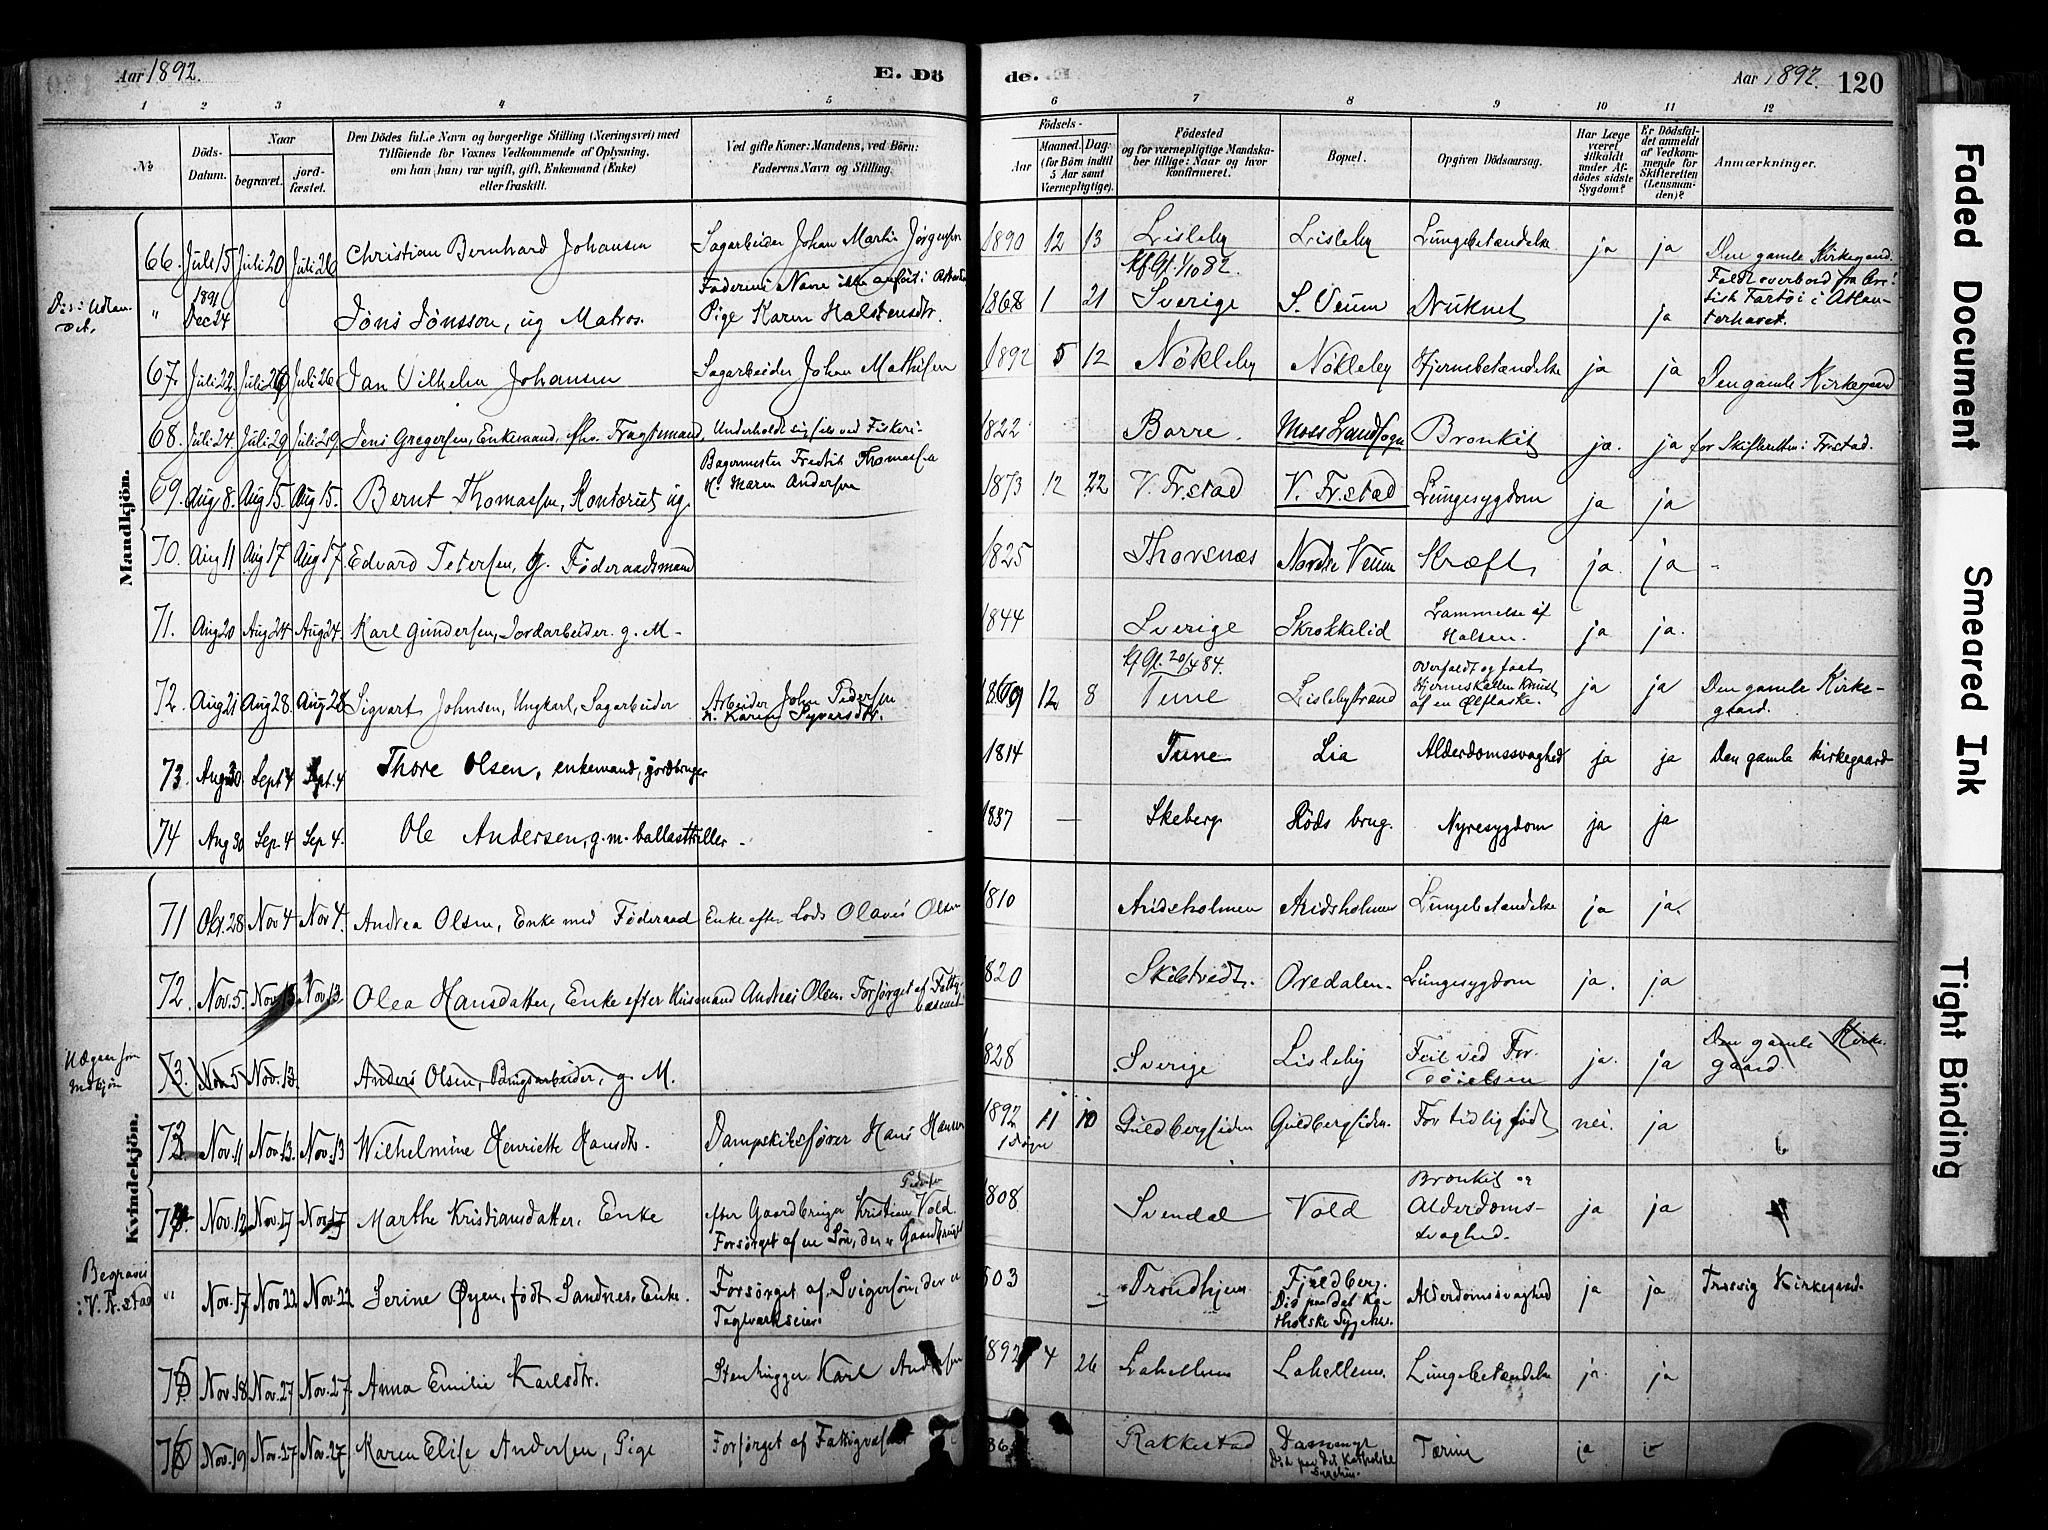 Aar 1892. E. Dö de. Aar 1892. 120
1 2 3 4 5 6 7 8 9 10 11 12
No Döds-Datum. Naar begravet. jordfæstet. Den Dödes fulde Navn og borgerlige Stilling (Næringsvei) med Tilföiende for Voxnes Vedkommende af Oplysning, om han (hun) var ugift, gift, Enkemand (Enke) eller fraskilt. Ved gifte Koner: Mandens, ved Börn: Faderens Navn og Stilling. Födsels- Aar Maaned. Dag. (for Börn indtil 5 Aar samt Værnepligtige). Födested og for værnepligtige Mandskaber tillige: Naar og hvor konfirmeret. Bopæl. Opgiven Dödsaarsag. Har Læge været tilkaldt under Afdödes sidste Sygdom? Er Dödsfaldet anmeldt af Vedkommende for Skifteretten (Lensmanden)? Anmærkninger.
Mandkjön.
66. Juli 15 Juli 20 Juli 26 Christian Bernhard Johansen Sagarbeider Johan Martin Jørgensen 1890 12 13 Lisleby Lisleby Lungebetændelse ja ja Den gamle Kirkegaard.
" 1891 Dec 24 Jöns Jönsson, ug Matros. Pige Karen Halstensdtr. 1868 1 21 Kf. Gl. 1/10 82. Sverige S. Veum Druknet ja Faldt overbord fra Fartøi i Atlanterhavet.
67. Juli 22. Juli 26 Juli 26. Jan Vilhelm Johansen Sagarbeider Johan Mathisen 1892 5 12 Nökleby Nökleby Hjernebetændelse ja ja Den gamle Kirkegaard
68. Juli 24 Juli 29 Juli 29. Jens Gregersen, Enkemand, fhv. Fragtemand, Underholdt sig selv ved Fiskeri- 1822 Borre. Moss Landsogn Bronkit ja. ja for Skifteretten i Frstad.
69. Aug 8. Aug 15. Aug 15. Bernt Thomassen, Kontorist ug. Bagermester Fredrik Thomassen H. Maren Andersen 1873 12 22 V. Frstad V. Fr.stad Lungesygdom ja ja
70. Aug 11 Aug 17 Aug 17. Edvard Petersen, g. Föderaadsmand 1825 Thorsnæs Nordre Veum Kræft ja ja
71. Aug 20 Aug 24 Aug 24. Karl Gundersen, Jordarbeider. g. M. 1844 Sverige Skrokkelid Lammelse af Halsen. ja ja.
72. Aug 21 Aug 28. Aug 28 Sigvart Johnsen, Ungkarl, Sagarbeider Arbeider John Pedersen H. Karen Syversdtr. 1869 12 8 Kf. Gl. 20/4 84. Tune Lislebystrand Overfaldt og faat Hjerneskallen knust af en Ølflaske. ja ja Den gamle Kirkegaard.
73. Aug 30 Sept 4 Sept. 4 Thore Olsen, enkemand, jordbruger 1814 Tune Lia Alderdomssvaghed ja ja Den gamle kirkegaard
74 Aug 30 Sep. 4 Sep 4. Ole Andersen, g. m. ballastteller 1837 — Skeberg Röds brug. Nyresygdom ja ja
Kvindekjön.
71 Okt. 28 Nov 4 Nov 4. Andrea Olsen, Enke med Föderaad Enke efter Lods Olaves Olsen 1810 Arisholmen Arisholmen Lungebetændelse ja ja.
72. Nov. 5. Nov 13. Nov 13 Olea Hansdatter, Enke efter Husmand Andreas Olsen. Forsørget af Fattigvæsenet 820 Skibstvedt. Oredalen- Lungesygdom ja. ja
73. Nov 5 Nov. 13. Anders Olsen, Brugsarbeider, g. M. 828 Sverige Lisleby Feil ved Fordöielsen ja. ja Den gamle Kirkegaard.
73. Nov. 11 Nov. 13. Nov. 13 Wilhelmine Henriette Hansdtr. Dampskibsförer Hans Hansen 1892 11 10 1 Døgn Guldbergsiden Guldbergsiden. For tidlig født nei. ja
74. Nov. 12 Nov. 17 Nov. 17 Marthe Kristiansdatter, Enke efter Gaardbruger Kristian Vold. Forsørget af en Søn, der er Gaardbruger 1808 Svendal Vold Bronkit og Alderdomssvaghed. ja ja
Begravet i V. Fr.stad " Nov. 17 Nov 22 Nov. 22 Serine Øyen, født Sandnes, Enke. Forsørget af Svigersøn, der er Teglværkseier. 803 Trondhjem Fjeldberg. Død paa det katholske Sygehus. Alderdomssvaghed ja ja Trosvig Kirkegaard.
75 Nov. 18 Nov. 27 Nov. 27. Anna Emilie Karlsdtr. Stenhugger Karl Andersen 1892 4 26 Lahellen Lahellen. Lungebetændelse ja. ja
76 Nov. 19 Nov. 27 Nov. 27 Karen Elise Andersen, Pige Forsørget af Fattigvæsenet 36 Rakkestad Død paa det katholske Sygehus. Tæring ja
Faded Document
Smeared Ink
Tight Binding